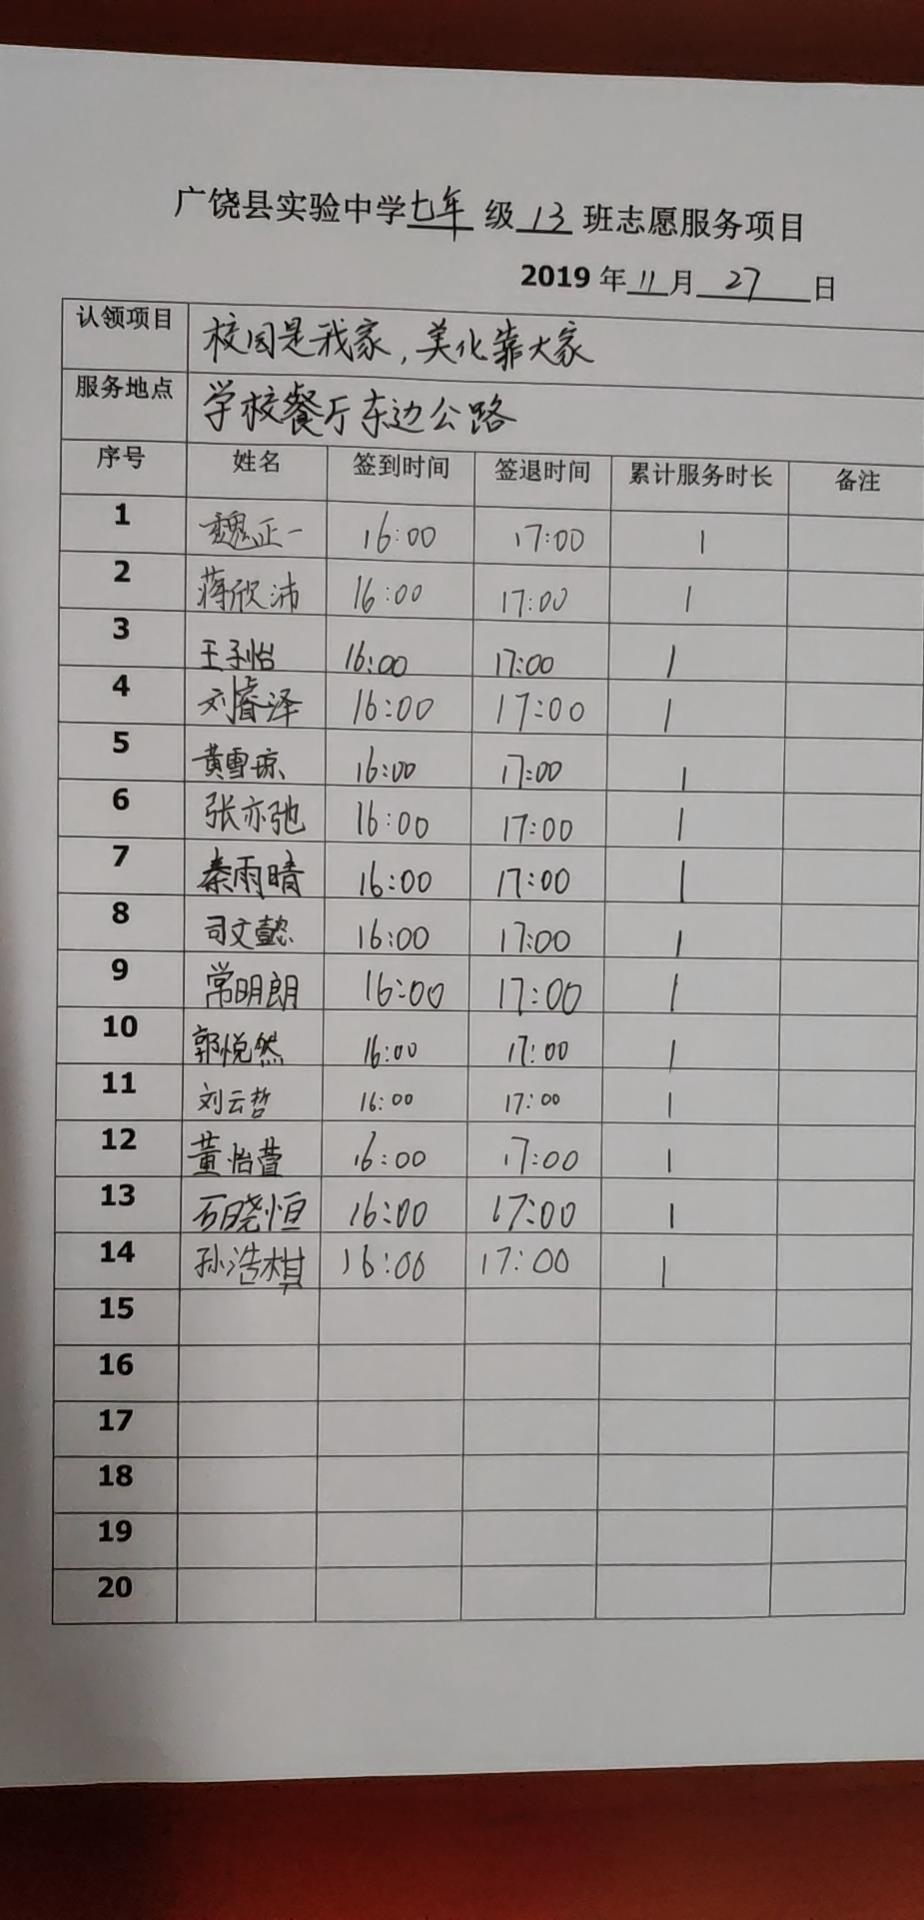 广饶县实验中学七年级13班志愿服务项目
2019年11月27日
认领项目 校园是我家,美化靠大家
服务地点 学校餐厅东边公路
序号 姓名 签到时间 签退时间 累计服务时长 备注
1 魏正一 16:00 17:00 1
2 蒋欣沛 16:00 17:00 1
3 王子怡 16:00 17:00 1
4 刘睿泽 16:00 17:00 1
5 黄雪琼 16:00 17:00 1
6 张亦弛 16:00 17:00 1
7 秦雨晴 16:00 17:00 1
8 司文懿 16:00 17:00 1
9 常明朗 16:00 17:00 1
10 郭悦然 16:00 17:00 1
11 刘云哲 16:00 17:00 1
12 董怡萱 16:00 17:00 1
13 石晓恒 16:00 17:00 1
14 孙浩棋 16:00 17:00 1
15
16
17
18
19
20